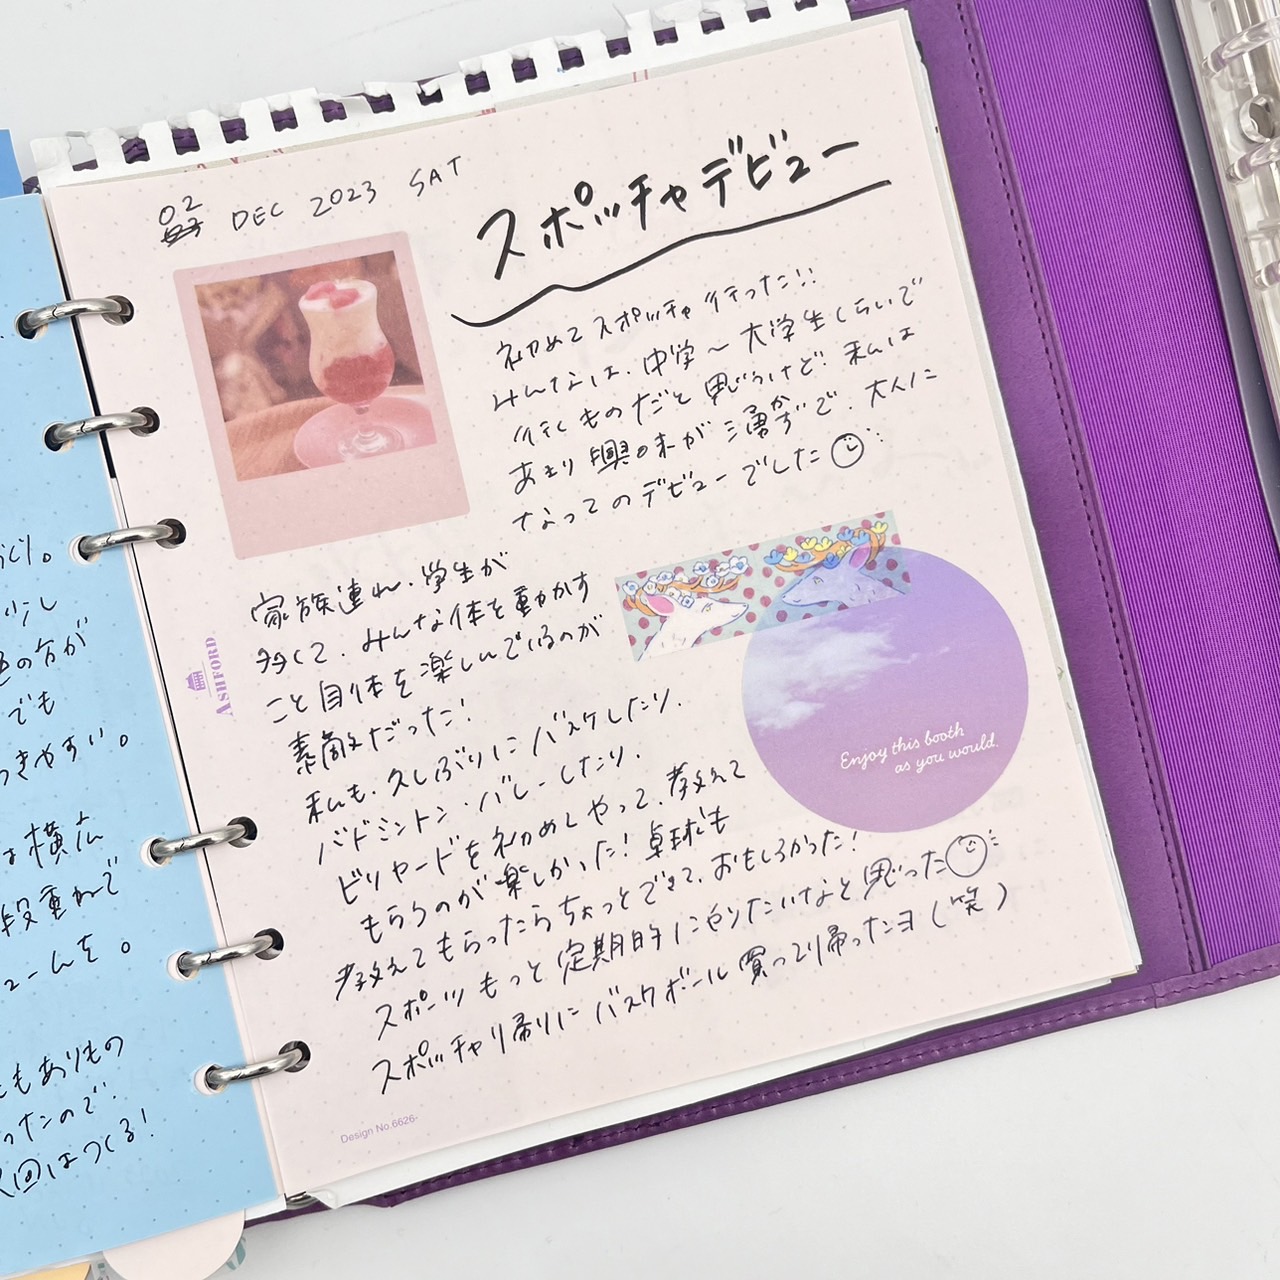 02 DEC 2023 SAT
スポッチャデビュー
初めてスポッチャ行った!!
みんなは、中学〜大学生くらいで
行くものだと思うけど、私は
あまり興味が湧かずで、大人に
なってのデビューでした
家族連れ・学生が
多くて、みんな体を動かす
こと自体を楽しんでいるのが
素敵だった!
私も、久しぶりにバスケしたり、
バドミントン・バレーしたり、
ビリヤードを初めてやって、教えて
もらうのが楽しかった! 卓球も
教えてもらったらちょっとできて、おもしろかった!
スポーツもっと定期的にやりたいなと思った
スポッチャ帰りにバスケボール買って帰ったヨ(笑)
Enjoy this booth
as you would.
ASHFORD
Design No.6626-
少し
色の方が
でも
つきやすい。
は横広
段重ねで
ュームを。
もありもの
ったので、
次回はつくる!